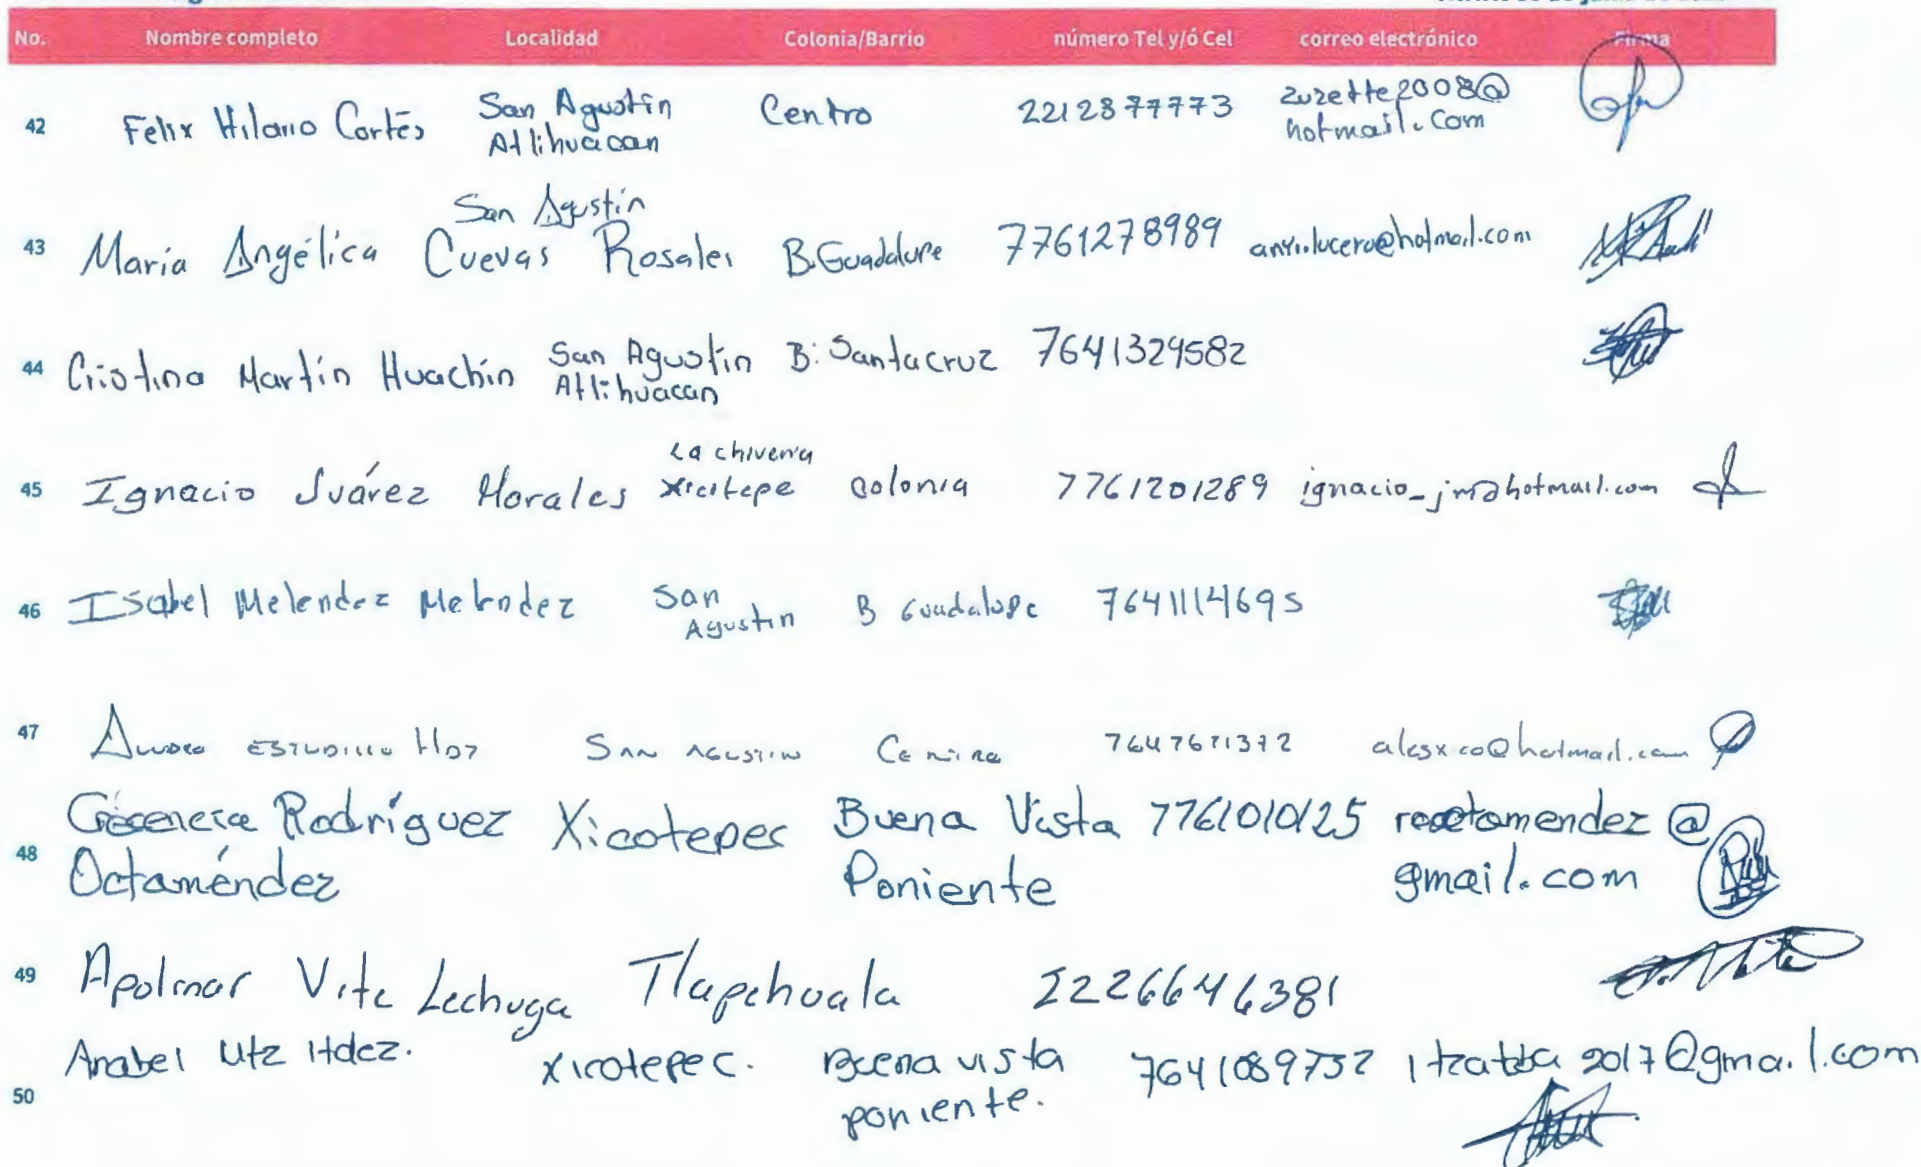 No. Nombre completo Localidad Colonia/Barrio número Tel y/ó Cel correo electrónico Firma
42 Felix Hilario Cortés San Agustin Atlihuacan Centro 2212877773 zuzette2008@hotmail.com
43 María Angélica Cuevas Rosales San Agustín B. Guadalupe 7761278989 hotmail.com
44 Cristina Martín Huachín San Agustín Atlihuacan B. Santacruz 7641329582
45 Ignacio Suárez Morales colonia 7761201289 ignacio_jm@hotmail.com
46 Isabel Melendez Melendez San Agustin B Guadalupe 7641114695
47 ESTUDILLO HDZ SAN AGUSTIN Centro alesxco@hotmail.com
48 Rodríguez Octaméndez Xicotepec Buena Vista Poniente 7761010125 gmail.com
49 Apolinar Vite Lechuga Tlapehuala 2226646381
50 Anabel Utz Hdez. Xicotepec. Buena vista poniente. 7641089752 2017@gmail.com